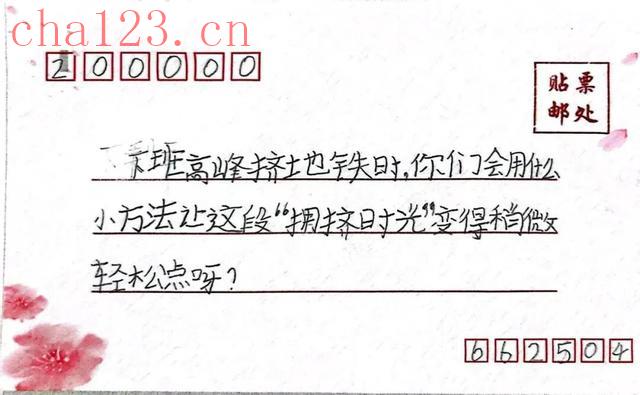 cha123.cn
200000
贴票
邮处
下班高峰挤地铁时,你们会用什么
小方法让这段“拥挤时光”变得稍微
轻松点呀?
662504